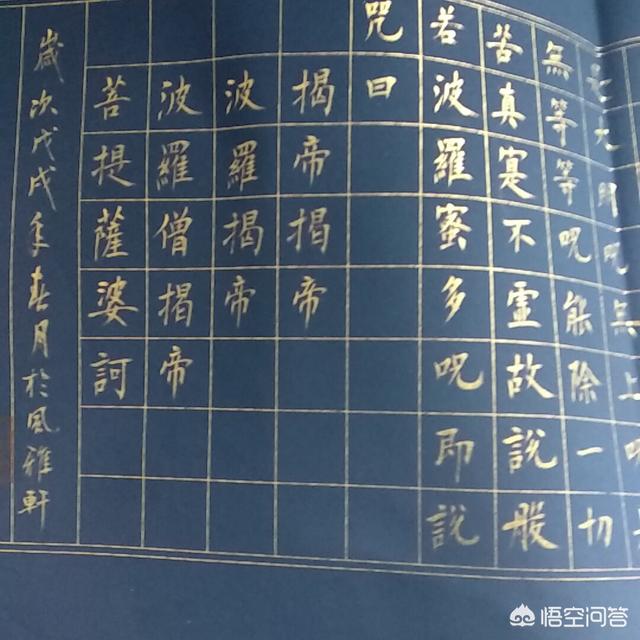 大明呪無上呪
無等等呪能除一切
苦真寔不虛故說般
若波羅蜜多呪即說
咒曰
揭帝揭帝
波羅揭帝
波羅僧揭帝
菩提薩婆訶
歲次戊戌年春月於風雅軒
悟空问答